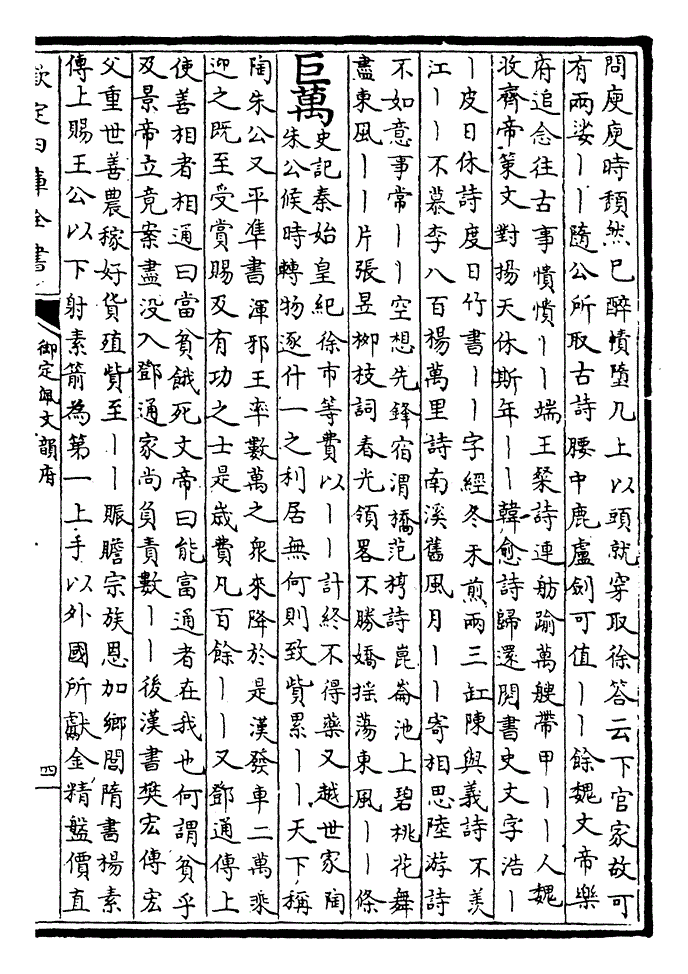 問庾庾時頹然已醉幘墮几上以頭就穿取徐答云下官家故可
有兩娑丨丨隨公所取古詩腰中鹿盧劍可值丨丨餘魏文帝樂
府追念往古事憒憒丨丨端王粲詩連舫踰萬艘帶甲丨丨人魏
收齊帝策文對揚天休斯年丨丨韓愈詩歸還閱書史文字浩丨
丨皮日休詩度日竹書丨丨字經冬朮煎兩三缸陳與義詩不羨
江丨丨不慕李八百楊萬里詩南溪舊風月丨丨寄相思陸游詩
不如意事常丨丨空想先鋒宿渭橋范梈詩崑崙池上碧桃花舞
盡東風丨丨片張昱柳枝詞春光領畧不勝嬌搖蕩東風丨丨條
巨萬
史記秦始皇紀徐市等費以丨丨計終不得藥又越世家陶
朱公候時轉物逐什一之利居無何則致貲累丨丨天下稱
陶朱公又平準書渾邪王率數萬之衆來降於是漢發車二萬乘
迎之既至受賞賜及有功之士是歲費凡百餘丨丨又鄧通傳上
使善相者相通曰當貧餓死文帝曰能富通者在我也何謂貧乎
及景帝立竟案盡没入鄧通家尚負責數丨丨後漢書樊宏傳宏
父重世善農稼好貨殖貲至丨丨賑贍宗族恩加鄉閭隋書楊素
傳上賜王公以下射素箭為第一上手以外國所獻金精盤價直
欽定四庫全書
御定佩文韻府
四